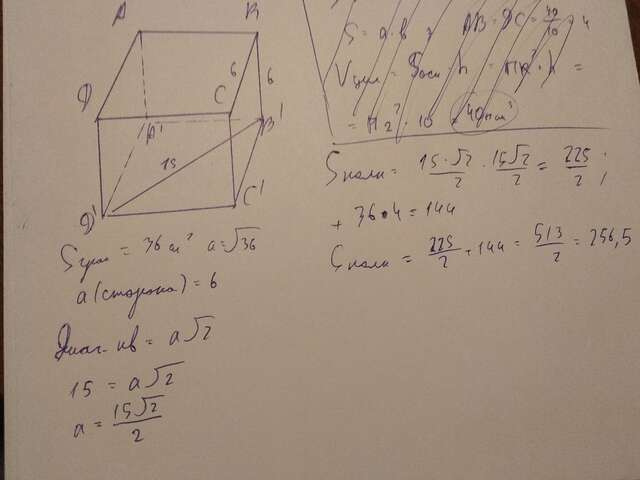 A B
6 6
Д C
A' B'
15
Д' C'
S = 36 см² a = √36
a (сторона) = 6
Диаг. кв = a√2
15 = a√2
a = 15√2/2
S = a · b AB = DC = 40/10 = 4
Vцил = Sосн · h = ПR² · h =
= П2² · 10 = 40π см³
Sполн = 15·√2/2 · 15√2/2 = 225/2;
+ 36·4 = 144
Sполн = 225/2 + 144 = 513/2 = 256,5